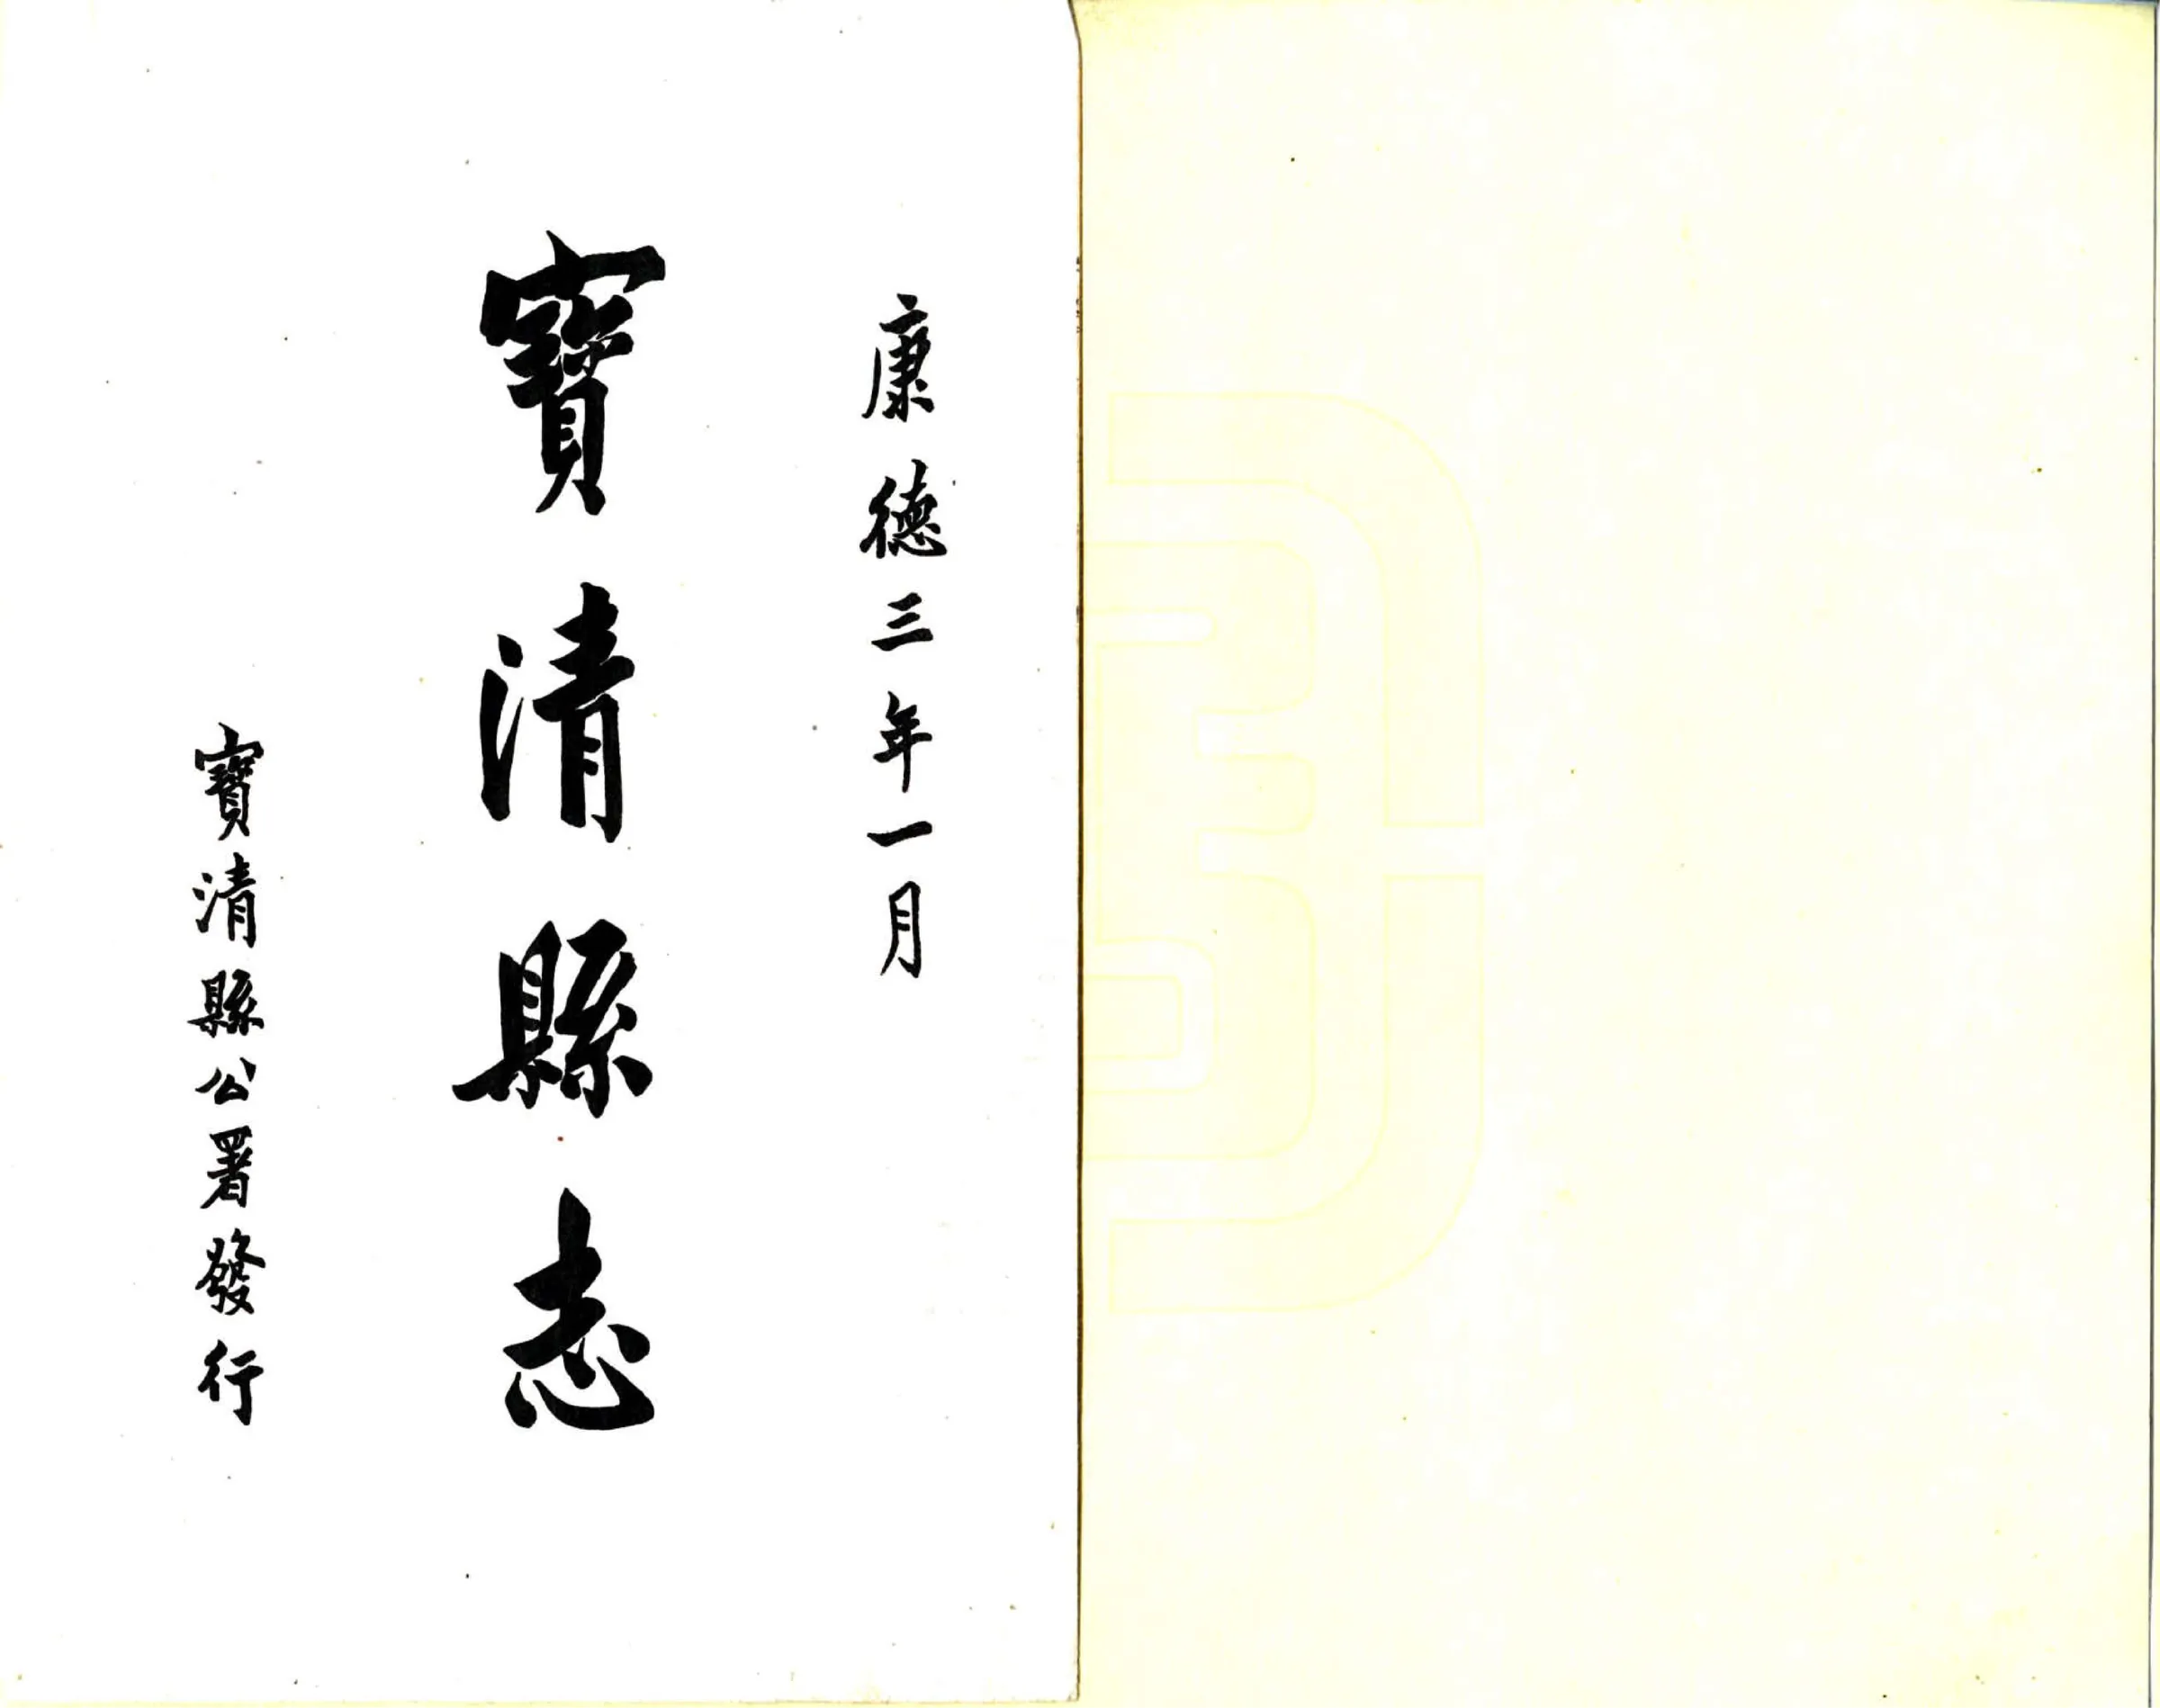 康德三年一月
寶清縣志
寶清縣公署發行